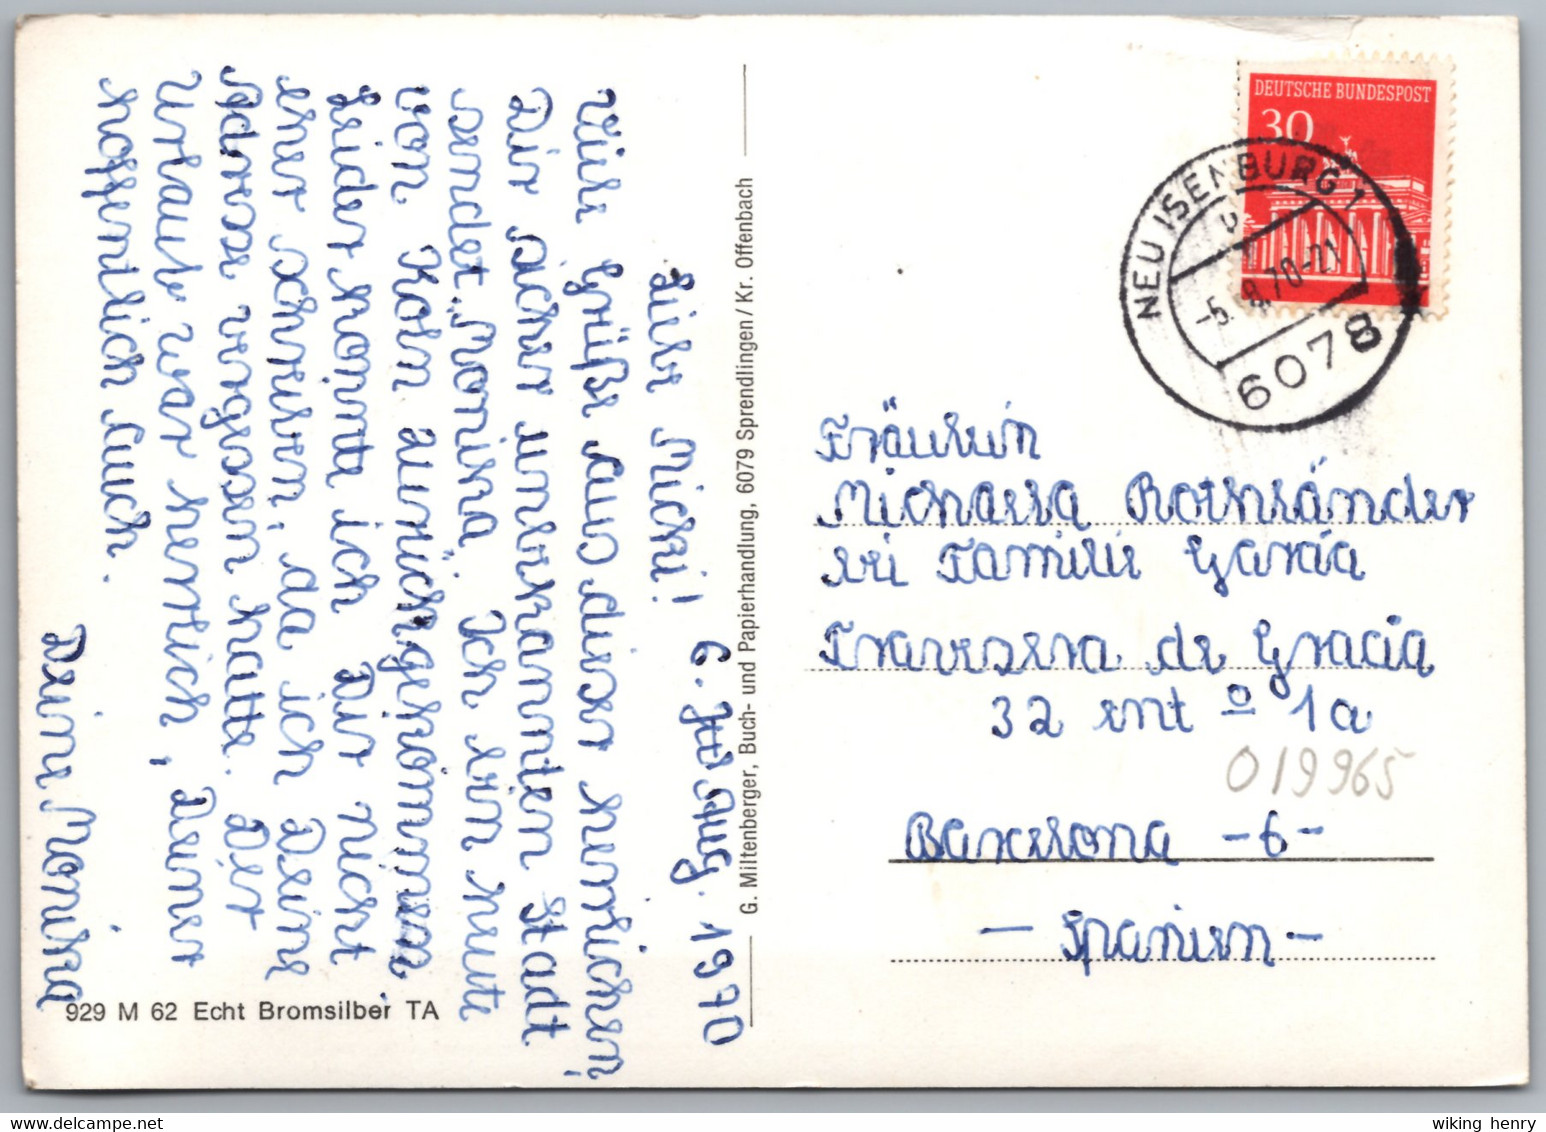 6. J̶u̶l̶i̶ Aug. 1970
Liebe Micki!
Viele Grüße aus dieser herrlichen,
Dir sicher unbekannten Stadt
sendet „Monika. Ich bin heute
von Köln zurückgekommen.
Leider konnte ich Dir nicht
eher schreiben, da ich Deine
Adresse vergessen hatte. Der
Urlaub war herrlich, Deiner
hoffentlich auch.
Deine Monika
929 M 62 Echt Bromsilber TA
G. Miltenberger, Buch- und Papierhandlung, 6079 Sprendlingen / Kr. Offenbach
DEUTSCHE BUNDESPOST
30
NEU ISENBURG 1
-5.8.70-21
6078
Fräulein
Michaela Rothländer
bei Familie Garcia
Travesera de Gracia
32 ent º 1a
019965
Barcelona -6-
- Spanien -
wiking henry